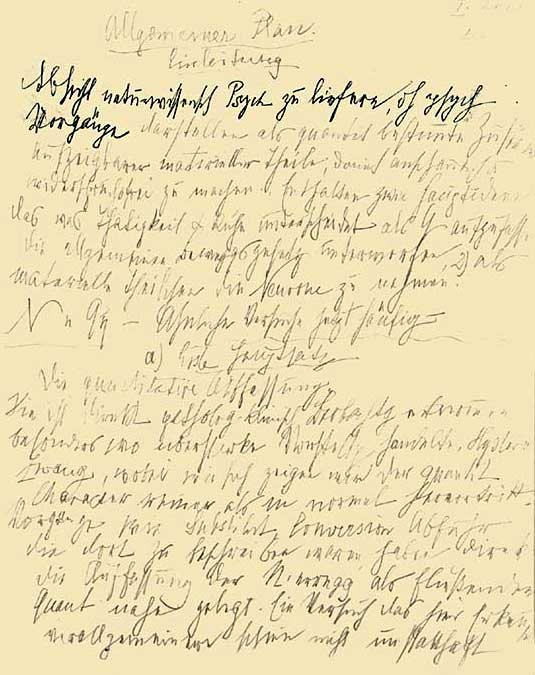 Allgemeiner Plan.
Einleitung
Absicht naturwissensch Psych zu liefern, dh psych
Vorgänge darstellen als quantit bestimmte Zustände
aufzeigbarer materieller Theile, damit anschaulich u
widerspruchsfrei zu machen. Enthalten zwei Hauptideen
das was Thätigkeit u Ruhe unterscheidet als Q aufzufass.
die allgemeinen Bewegungsgesetz unterworfen, 2) als
materielle Theilchen die Neurone zu nehmen.
N u Qή – Ähnliche Versuche jetzt häufig –
a) Erste Hauptsatz
Die quantitative Auffassung.
Sie ist direkt patholog-klinisch Beobachtg entnommen
besonders wo überstarke Vorstellg handelte, Hysterie
Zwang, wobei wie sich zeigen wird der quantit
Charakter reiner als im normal hervortritt.
Vorgänge wie Substitut, Conversion Abfuhr
die dort zu beschreiben waren haben direkt
die Auffassung der N-erregg als fließender
Quant nahe gelegt. Ein Versuch das hier Erkannte
verallgemeinern schien nicht unstatthaft